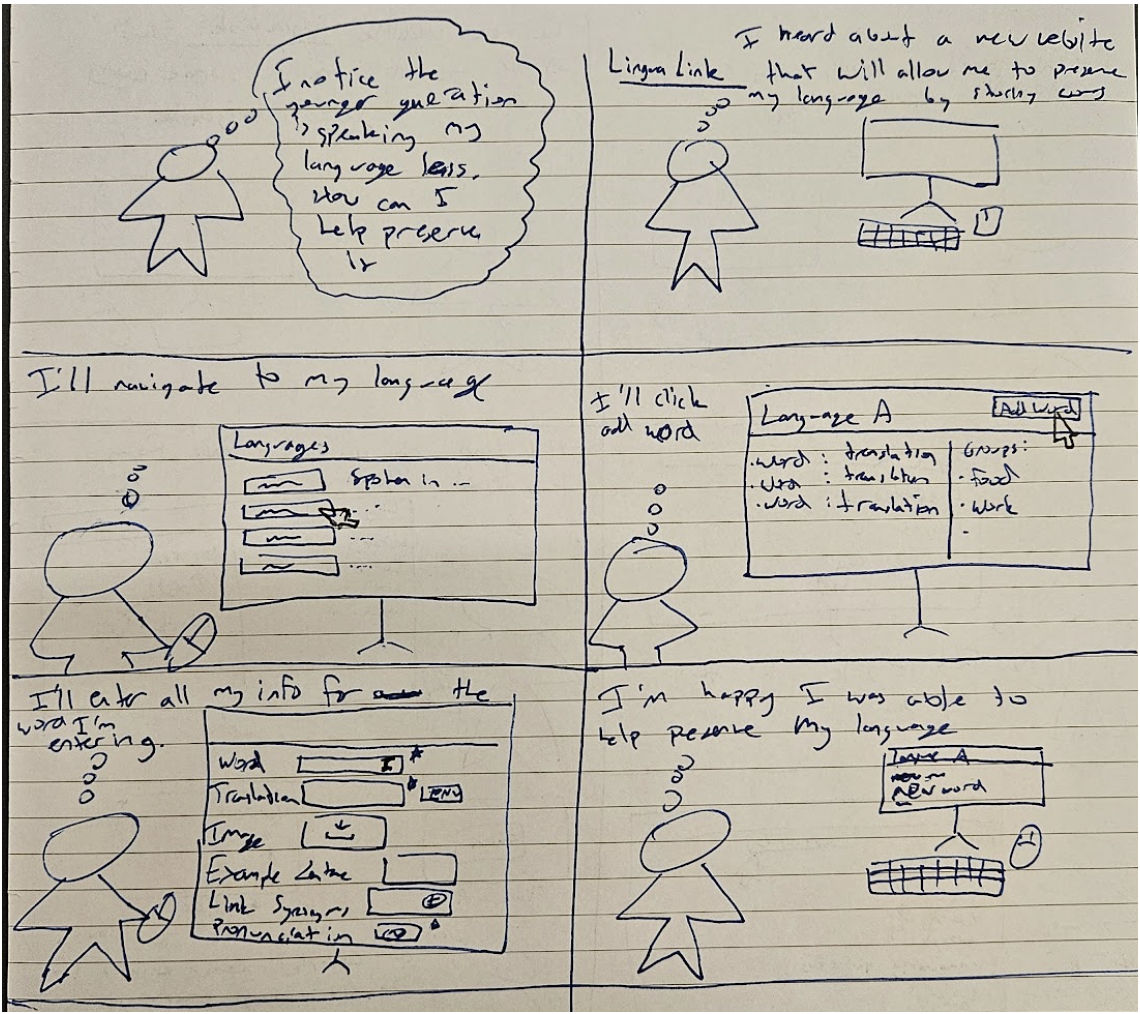 I notice the
younger
speaking my
language less.
How can I
help preserve
it
Lingua Link
I heard about a new website
that will allow me to preserve
my language by
I'll navigate to my language
Languages
Spoken in ...
I'll click
add word
Language A
Add word
word : translation
word : translation
word : translation
Groups:
Food
Work
I'll enter all my info for the
word I'm
entering.
Word *
Translation *
Image
Example
Link Synonyms
Pronunciation *
I'm happy I was able to
help preserve my language
A
new word